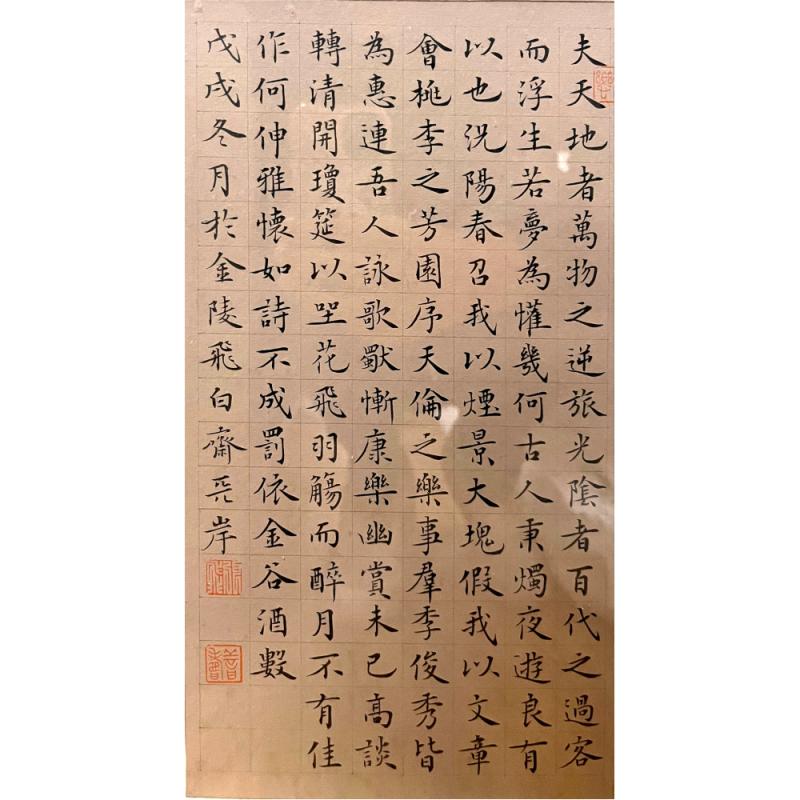 夫天地者萬物之逆旅光陰者百代之過客
而浮生若夢為懽幾何古人秉燭夜遊良有
以也況陽春召我以煙景大塊假我以文章
會桃李之芳園序天倫之樂事羣季俊秀皆
為惠連吾人詠歌獨慚康樂幽賞未已高談
轉清開瓊筵以坐花飛羽觴而醉月不有佳
作何伸雅懷如詩不成罰依金谷酒數
戊戌冬月於金陵飛白齋岸